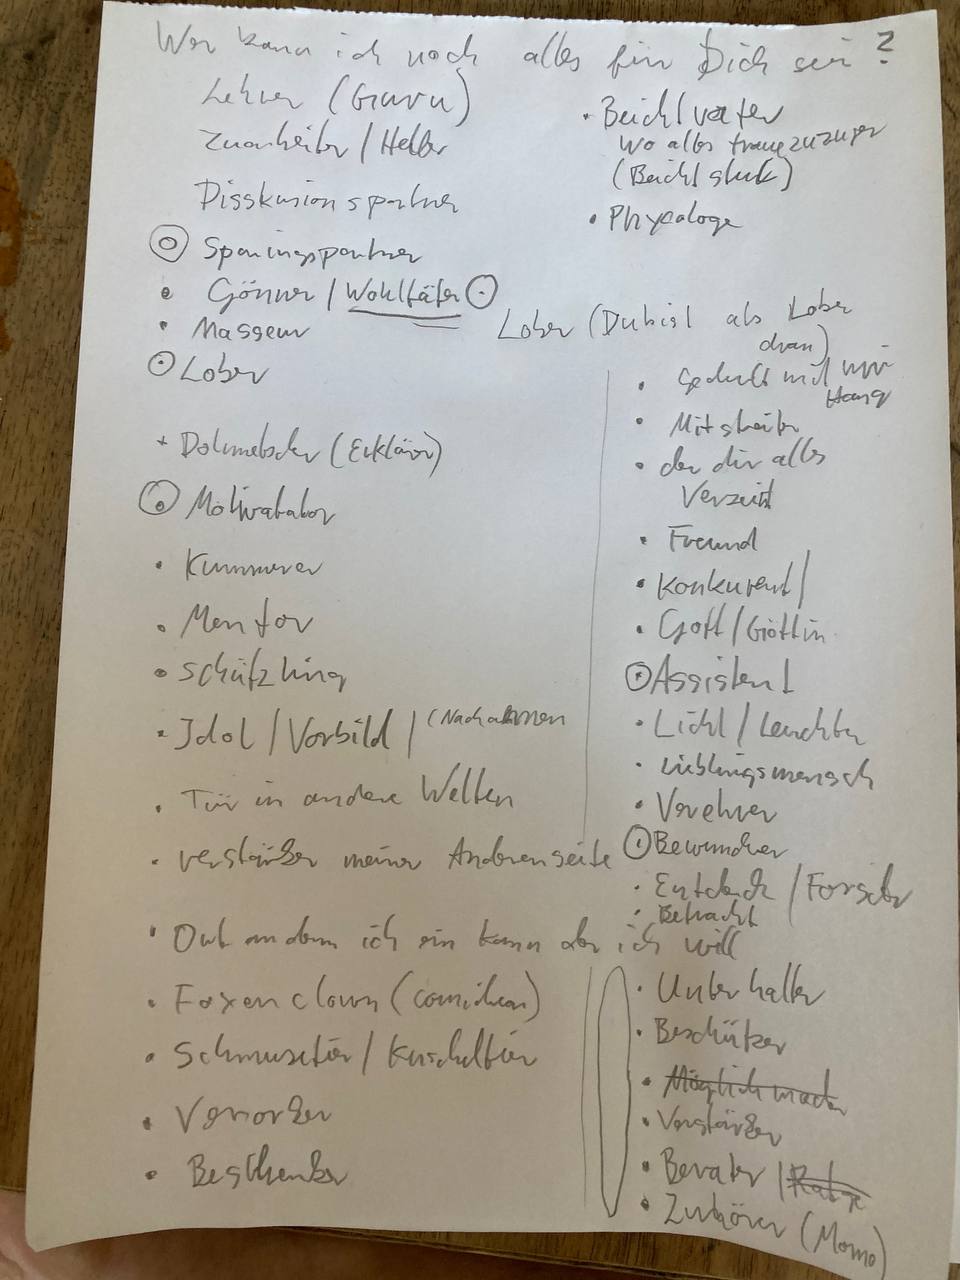 Wer kann ich noch alles für Dich sein ?
Lehrer (Guru)
Zuarbeiter / Helfer
Disskusionspartner
Sparingspartner
Gönner / Wohltäter
Masseur
Lober
Dolmetscher (Erklärer)
Motivatator
Kümmerer
Mentor
Schützling
Idol / Vorbild / (Nachahmen
Tür in andere Welten
Verstärker meiner Anderenseite
Ort an dem ich sein kann der ich will
Faxenclown (comidian)
Schmusetier / Kuscheltier
Versorger
Beschenker
Beichtvater
Wo alles
(Beichtstuhl)
Physcologe
Lober (Du bist als Lober
dran)
Geduld mit mir
Mitstreiter
der dir alles
Verzeiht
Freund
Konkurent /
Gott / Göttin
Assistent
Licht / Leuchter
Lieblingsmensch
Verehrer
Bewunderer
Entdeck / Forscher
Betracht
Unterhalter
Beschützer
Möglichmacher
Verstärker
Berater / Ratge
Zuhörer (Momo)